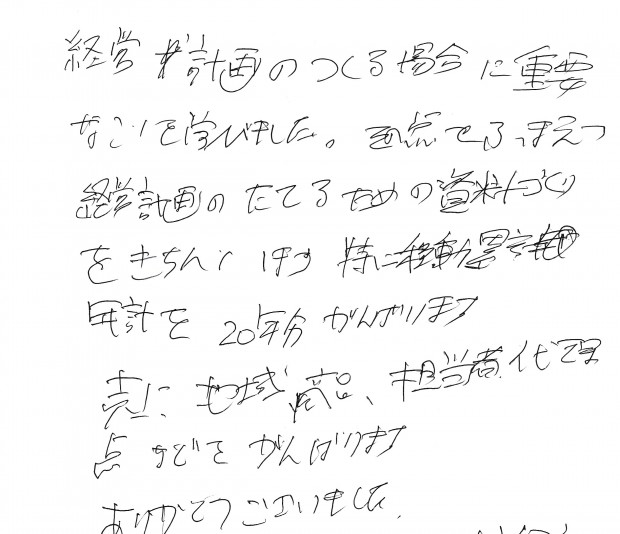 経営計画のつくる場合に重要
なことを学びました。 をふまえつ
経営計画のたてるための資料づくり
をきちんとします 特に移動累計
年計を 20年分 がんばります
更に、地域、商品、担当者、代理
店などを がんばります
ありがとうございました。